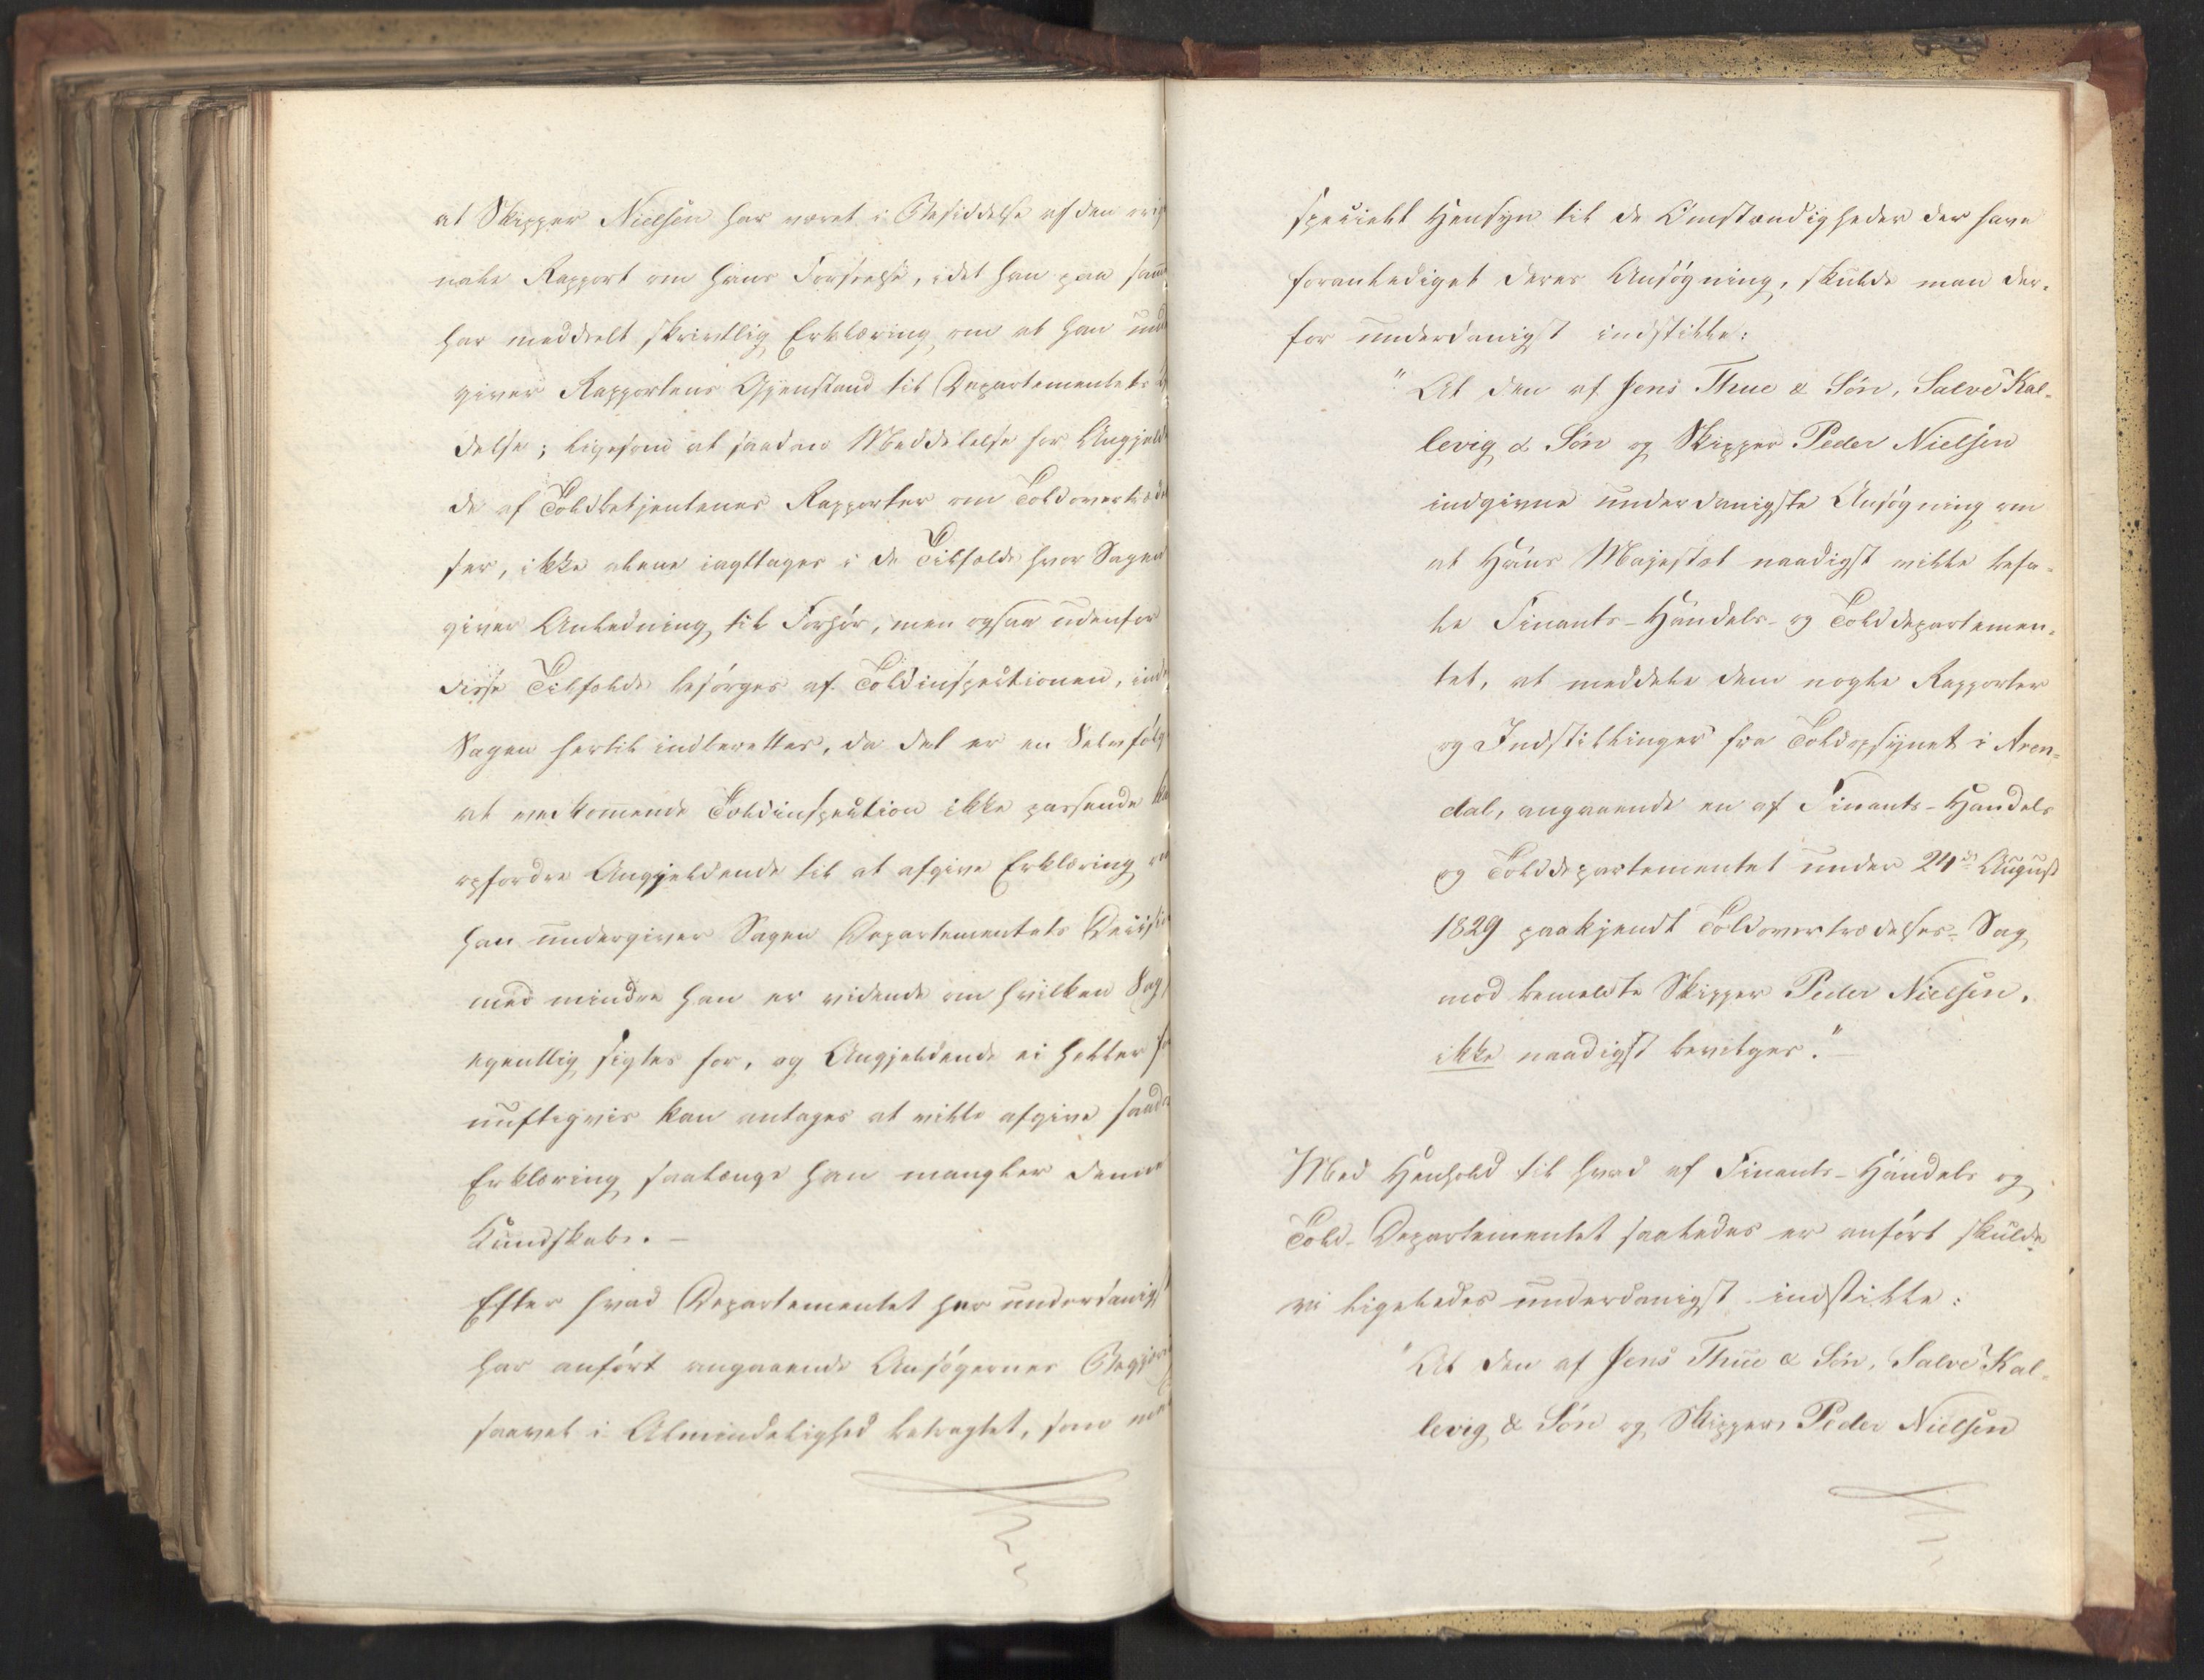 at Skipper Nielsen har været i Besiddelse af den origi
nale Rapport om hans Forseelse, idet han paa samme
har meddelt skriftlig Erklæring om at han under
giver Rapportens Gjenstand til Departementets
delse; ligesom at saadan Meddelelse for Angjelden
de af Toldbetjentenes Rapporter om Toldovertrædel
ser, ikke alene iagttages i de Tilfælde hvor Sagen
giver Anledning til Forhør, men ogsaa udenfor
disse Tilfælde besørges af Toldinspectionen, inden
Sagen hertil indberettes, da det er en Selvfølge
at vedkomende Toldinspection ikke passende kan
opfordre Angjeldende til at afgive Erklæring om
han undergiver Sagen Departementets Decision
med mindre han er vidende om hvilken Sag
egentlig sigtes for, og Angjeldende ei heller for
nuftigvis kan antages at ville afgive saadan
Erklæring saalænge han mangler denne
Kundskab. –
Efter hvad Departementet her underdanigst
har anført angaaende Ansøgernes Begjæring
saavel i Almindelighed betragtet, som med
specielt Hensyn til de Omstændigheder der have
foranlediget deres Ansøgning, skulde man der-
for underdanigst indstille:
"At den af Jens Thue & Søn, Salve Kal-
levig & Søn og Skipper Peder Nielsen
indgivne underdanigste Ansøgning om
at Hans Majestæt naadigst ville befa-
le Finants-Handels- og Tolddepartemen-
tet, at meddele dem nogle Rapporter
og Indstillinger fra Toldopsynet i Aren-
dal, angaaende en af Finants-Handels
og Tolddepartementet under 24de August
1829 paakjendt Toldovertrædelses-Sag
mod bemeldte Skipper Peder Nielsen,
ikke naadigst bevilges." –
Med Henhold til hvad af Finants-Handels og
Told-Departementet saaledes er anført skulde
vi ligeledes underdanigst indstille:
"At den af Jens Thue & Søn, Salve Kal-
levig & Søn og Skipper Peder Nielsen